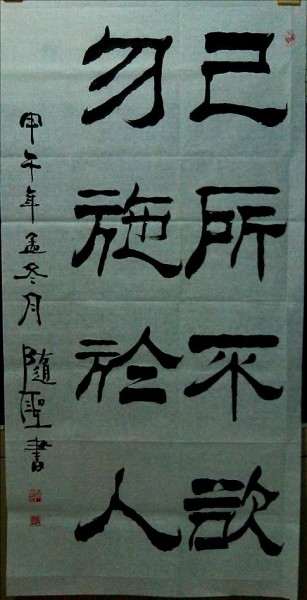 己所不欲
勿施於人
甲午年孟冬月隨聖書